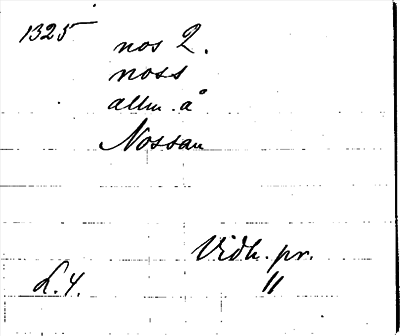 1325
nos 2.
noss
allm. å
Nossan
Vidh. pr.
L. 4. "